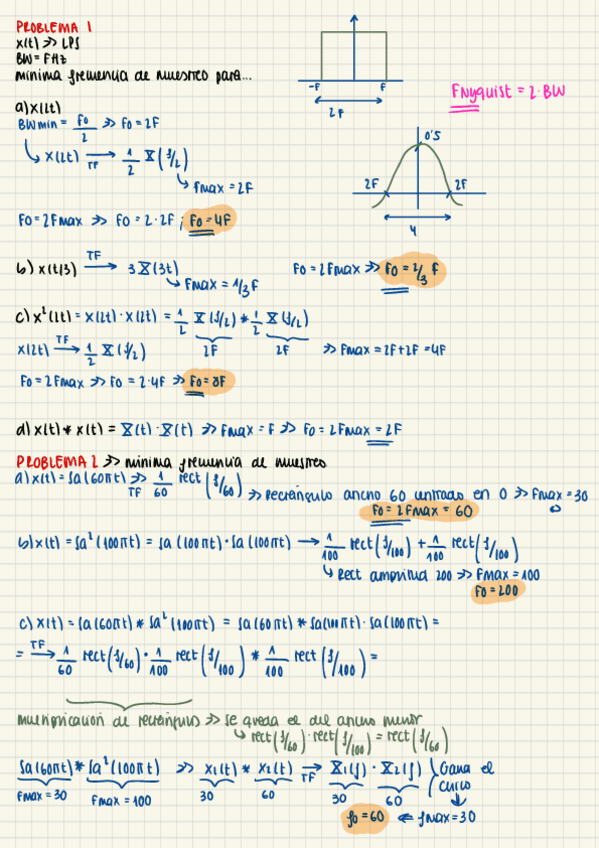 PROBLEMA 1
x(t) >> LPS
BW = F Hz
mínima frecuencia de muestreo para...
-F F
2F
FNyquist = 2·BW
a) x(2t)
BWmin = fo/2 >> Fo = 2F
x(2t) →TF 1/2 X(f/2)
Fmax = 2F
0'5
2F 2F
4
Fo = 2Fmax >> Fo = 2·2F ; Fo = 4F
b) x(t/3) →TF 3X(3t)
Fmax = 1/3 F
Fo = 2Fmax >> Fo = 2/3 F
c) x²(2t) = x(2t)·x(2t) = 1/2 X(f/2) * 1/2 X(f/2)
2F 2F
x(2t) →TF 1/2 X(f/2) >> Fmax = 2F+2F = 4F
Fo = 2Fmax >> Fo = 2·4F >> Fo = 8F
d) x(t) * x(t) = X(t)·X(t) >> Fmax = F >> Fo = 2Fmax = 2F
PROBLEMA 2 >> mínima frecuencia de muestreo
a) x(t) = Sa(60πt) >> TF 1/60 rect(f/60) >> Rectángulo ancho 60 centrado en 0 >> Fmax = 30
Fo = 2Fmax = 60
b) x(t) = Sa²(100πt) = Sa(100πt)·Sa(100πt) → 1/100 rect(f/100) + 1/100 rect(f/100)
Rect amplitud 200 >> Fmax = 100
Fo = 200
c) x(t) = Sa(60πt) * Sa²(100πt) = Sa(60πt) * Sa(100πt)·Sa(100πt) =
= →TF 1/60 rect(f/60) · 1/100 rect(f/100) * 1/100 rect(f/100) =
multiplicación de rectángulos >> se queda el del ancho menor
rect(f/60) · rect(f/100) = rect(f/60)
Sa(60πt) * Sa²(100πt) >> x1(t) * x2(t) →TF X1(f) · X2(f) Gana el
Fmax = 30 Fmax = 100 30 60 30 60 chico
fo = 60 ⇐ fmax = 30